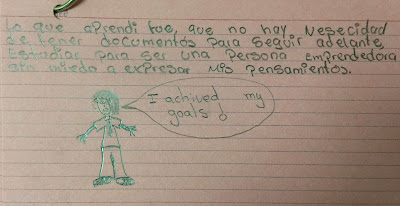 Lo que aprendi fue, que no hay Nesecidad
de tener documentos para seguir adelante,
Estudiar para ser una persona Emprendedora
sin miedo a expresar Mis pensamientos.
I achived my
goals!